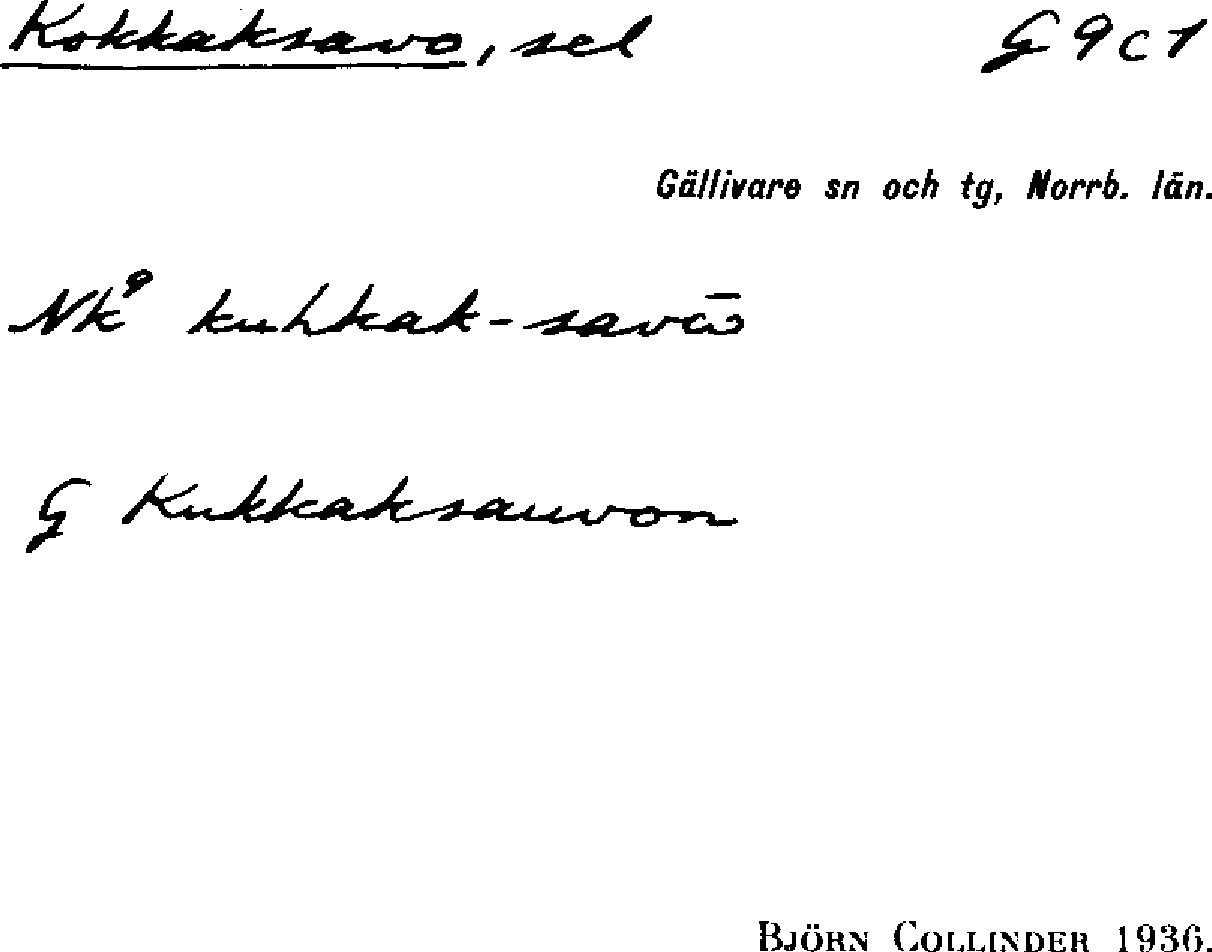 Kokkaksavo, sel G 9 c 1
Gällivare sn och tg, Norrb. län.
Nk⁹ kuhkak-savɷ̄
G Kukkaksauvon
BJÖRN COLLINDER 1936.